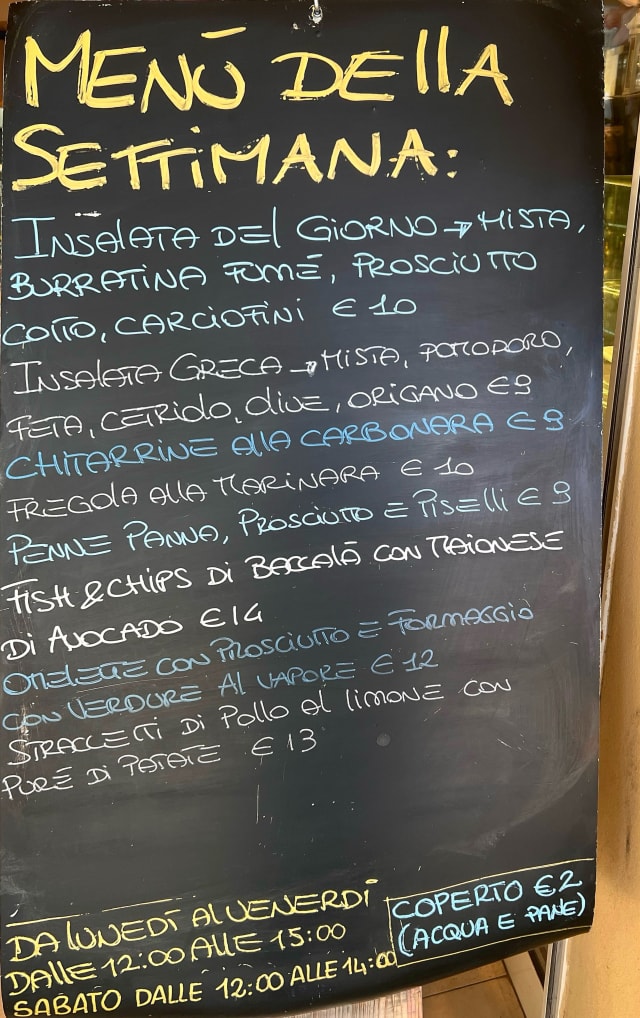 MENÙ DELLA
SETTIMANA:
INSALATA DEL GIORNO → MISTA,
BURRATINA FUMÉ, PROSCIUTTO
COTTO, CARCIOFINI € 10
INSALATA GRECA → MISTA, POMODORO,
FETA, CETRIOLO, OLIVE, ORIGANO € 9
CHITARRINE ALLA CARBONARA € 9
FREGOLA ALLA MARINARA € 10
PENNE PANNA, PROSCIUTTO E PISELLI € 9
FISH & CHIPS DI BACCALÀ CON MAIONESE
DI AVOCADO € 14
OMELETTE CON PROSCIUTTO E FORMAGGIO
CON VERDURE AL VAPORE € 12
STRACCETTI DI POLLO AL LIMONE CON
PURÉ DI PATATE € 13
DA LUNEDÌ AL VENERDÌ
DALLE 12:00 ALLE 15:00
SABATO DALLE 12:00 ALLE 14:00
COPERTO €2
(ACQUA E PANE)